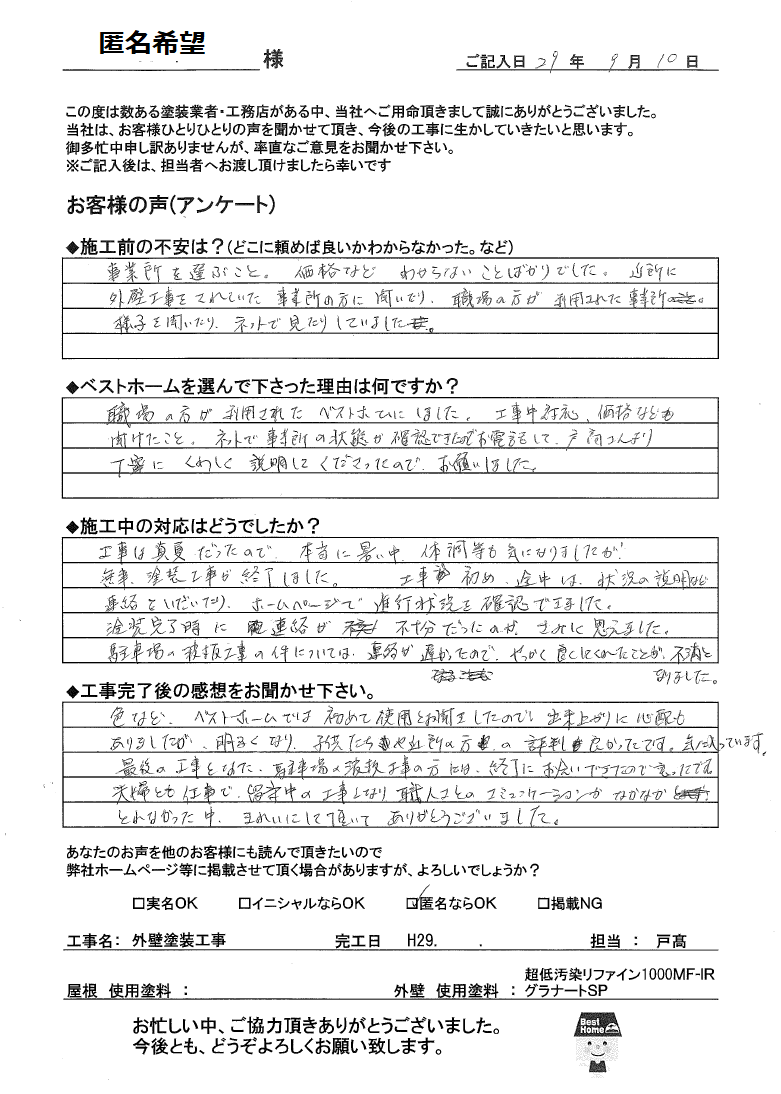 匿名希望 様
ご記入日 29 年 9 月 10 日
この度は数ある塗装業者・工務店がある中、当社へご用命頂きまして誠にありがとうございました。
当社は、お客様ひとりひとりの声を聞かせて頂き、今後の工事に生かしていきたいと思います。
御多忙中申し訳ありませんが、率直なご意見をお聞かせ下さい。
※ご記入後は、担当者へお渡し頂けましたら幸いです
お客様の声(アンケート)
◆施工前の不安は？(どこに頼めば良いかわからなかった。など)
事業所を選ぶこと。価格など わからないことばかりでした。近所に
外壁工事をされていた事業所の方に聞いたり、職場の方が利用された事業所
様子を聞いたり、ネットで見たりしていました。
◆ベストホームを選んで下さった理由は何ですか？
職場の方が利用されたベストホームにしました。工事中対応、価格なども
聞けたこと。ネットで事業所の状態が確認できたのでお電話して、戸高さんより
丁寧にくわしく説明してくださったので、お願いしました。
◆施工中の対応はどうでしたか？
工事は真夏だったので、本当に暑い中、体調等も気になりましたが、
無事、塗装工事が終了しました。工事初め、途中は、状況の説明など
連絡をいただいたり、ホームページで進行状況を確認できました。
塗装完了時に連絡が不十分だったのが、さみしく思えました。
駐車場の 工事の件については、連絡が遅かったので、せっかく良くしてくれたことが、不満と
なりました。
◆工事完了後の感想をお聞かせ下さい。
色など、ベストホームでは初めて使用とお聞きしたので、出来上がりに心配も
ありましたが、明るくなり、子供たちや近所の方の評判も良かったです。気に入っています。
最後の工事となった、駐車場の 工事の方には、終了にお会いできたので良かったです
夫婦とも仕事で、留守中の工事となり、職人さんとのコミュニケーションがなかなか
とれなかった中、きれいにして頂いてありがとうございました。
あなたのお声を他のお客様にも読んで頂きたいので
弊社ホームページ等に掲載させて頂く場合がありますが、よろしいでしょうか？
□実名OK □イニシャルならOK ☑匿名ならOK □掲載NG
工事名： 外壁塗装工事 完工日 H29. . 担当 ： 戸髙
屋根 使用塗料 ： 外壁 使用塗料 ： 超低汚染リファイン1000MF-IR
グラナートSP
お忙しい中、ご協力頂きありがとうございました。
今後とも、どうぞよろしくお願い致します。
Best
Home